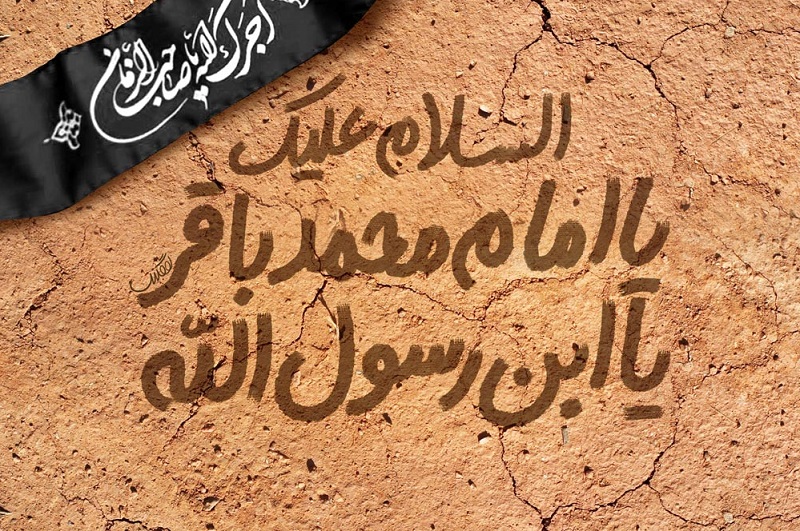 اجرک الله یا صاحب الزمان
السلام علیک
یا امام محمد باقر
یآ ابن رسول الله